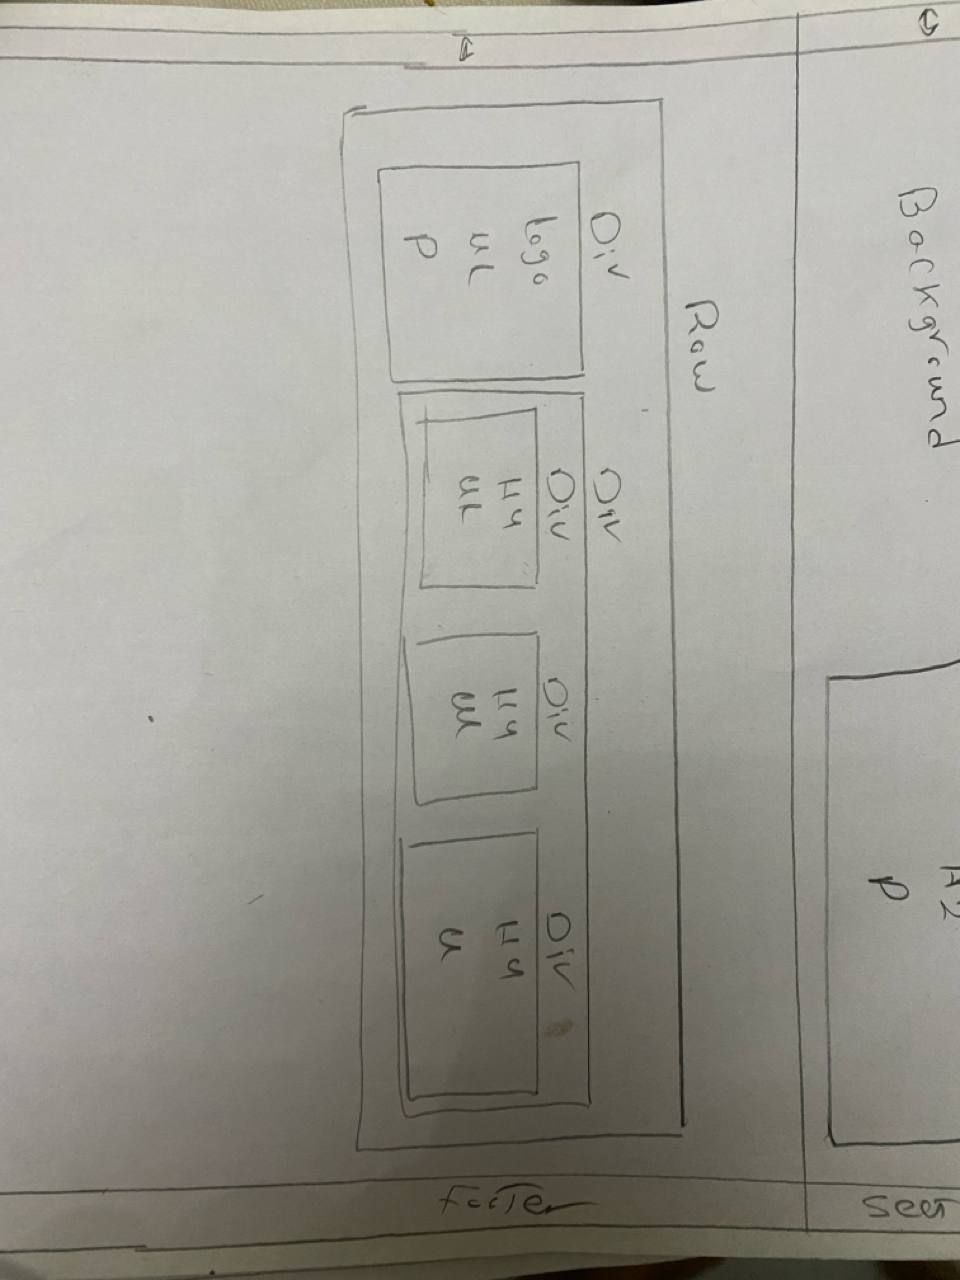 Background
H2
P
Sect
Row
Div
Logo
UL
P
Div
Div
H4
UL
Div
H4
UL
Div
H4
U
Footer